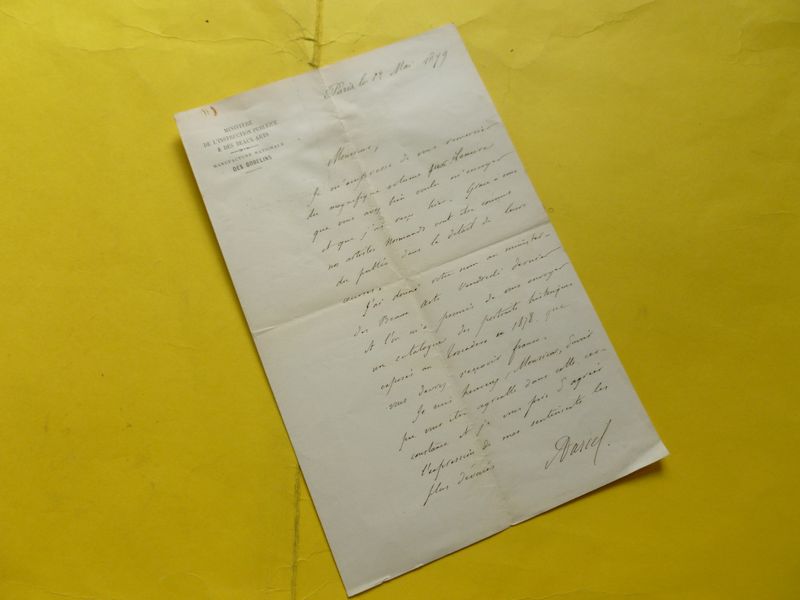 Paris le 12 Mai 1879
MINISTÈRE
DE L'INSTRUCTION PUBLIQUE
& DES BEAUX-ARTS
MANUFACTURE NATIONALE
DES GOBELINS
Monsieur,
Je m'empresse de vous remercier
du magnifique volume
que vous avez bien voulu m'envoyer
et que j'ai reçu hier. Grace à vous
nos artistes Normands vont être connus
du public dans le détail de leurs
œuvres.
J'ai donné votre nom au minister-
des Beaux Arts Vendredi dernier
et l'on m'a promis de vous envoyer
un catalogue des portraits historiques
exposés au Trocadero en 1878 que
vous devrez recevoir franco.
Je suis heureux, Monsieur, d'avoir
pu vous être agréable dans cette cir-
constance et je vous prie d'agréer
l'expression de mes sentiments les
plus dévoués
Darcel